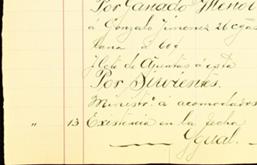 Por Ganado Menor
á Gonzalo Jimenez 26 c/
lana á 600
Flete de á esta
Por Sirvientes.
Ministrá á acomodados
" 13 Existencia en la fecha
Igual.